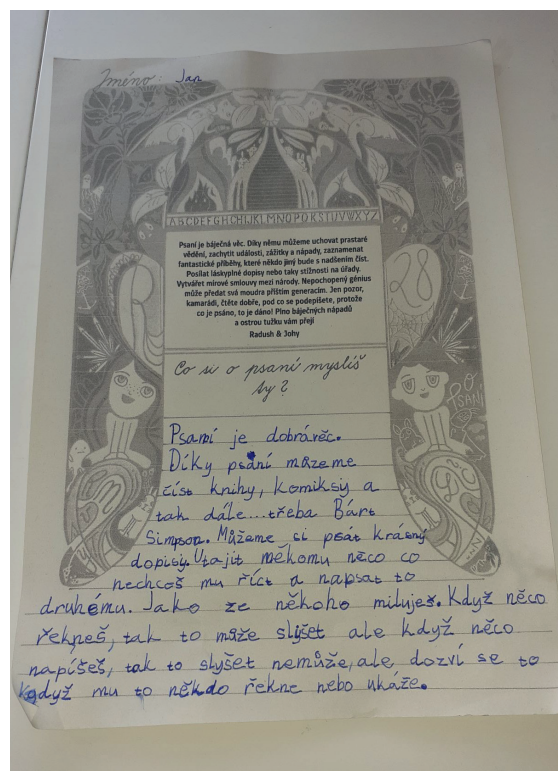 Jméno: Jan
ABCDEFGHCHIJKLMNOPQRSTUVWXYZ
Psaní je báječná věc. Díky němu můžeme uchovat prastaré
vědění, zachytit události, zážitky a nápady, zaznamenat
fantastické příběhy, které někdo jiný bude s nadšením číst.
Posílat láskyplné dopisy nebo taky stížnosti na úřady.
Vytvářet mírové smlouvy mezi národy. Nepochopený génius
může předat svá moudra příštím generacím. Jen pozor,
kamarádi, čtěte dobře, pod co se podepíšete, protože
co je psáno, to je dáno! Plno báječných nápadů
a ostrou tužku vám přejí
Radush & Johy
Co si o psaní myslíš
ty?
O
PSANÍ
Psaní je dobrávěc.
Díky psání můzeme
číst knihy, komiksy a
tak dále...třeba Bárt
Simpson. Můžeme si psát krásný
dopisy. Utajit někomu něco co
nechceš mu říct a napsat to
druhému. Jako ze někoho miluješ. Když něco
řekneš, tak to může slyšet ale když něco
napíšeš, tak to slyšet nemůže, ale dozví se to
když mu to někdo řekne nebo ukáže.